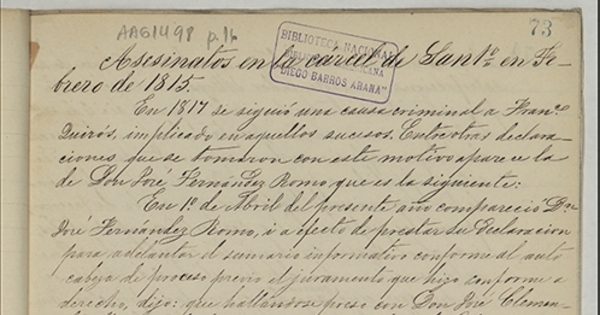 AAG1498 p.16
73
BIBLIOTECA NACIONAL
BIBLIOTECA AMERICANA
"DIEGO BARROS ARANA"
Asesinatos en la cárcel de Santo. en Fe-
brero de 1815.
En 1817 se siguió una causa criminal a Franco.
Quirós, implicado en aquellos sucesos. Entre otras declara-
ciones que se tomaron con este motivo aparece la
de Don José Fernández Romo que es la siguiente:
En 1o. de Abril del presente año compareció Dn
José Fernández Romo, i a efecto de prestar su Declaracion
para adelantar el sumario informativo conforme al auto
cabeza de proceso previo el juramento que hizo conforme a
derecho, dijo: que hallandose preso con Don José Clemen-